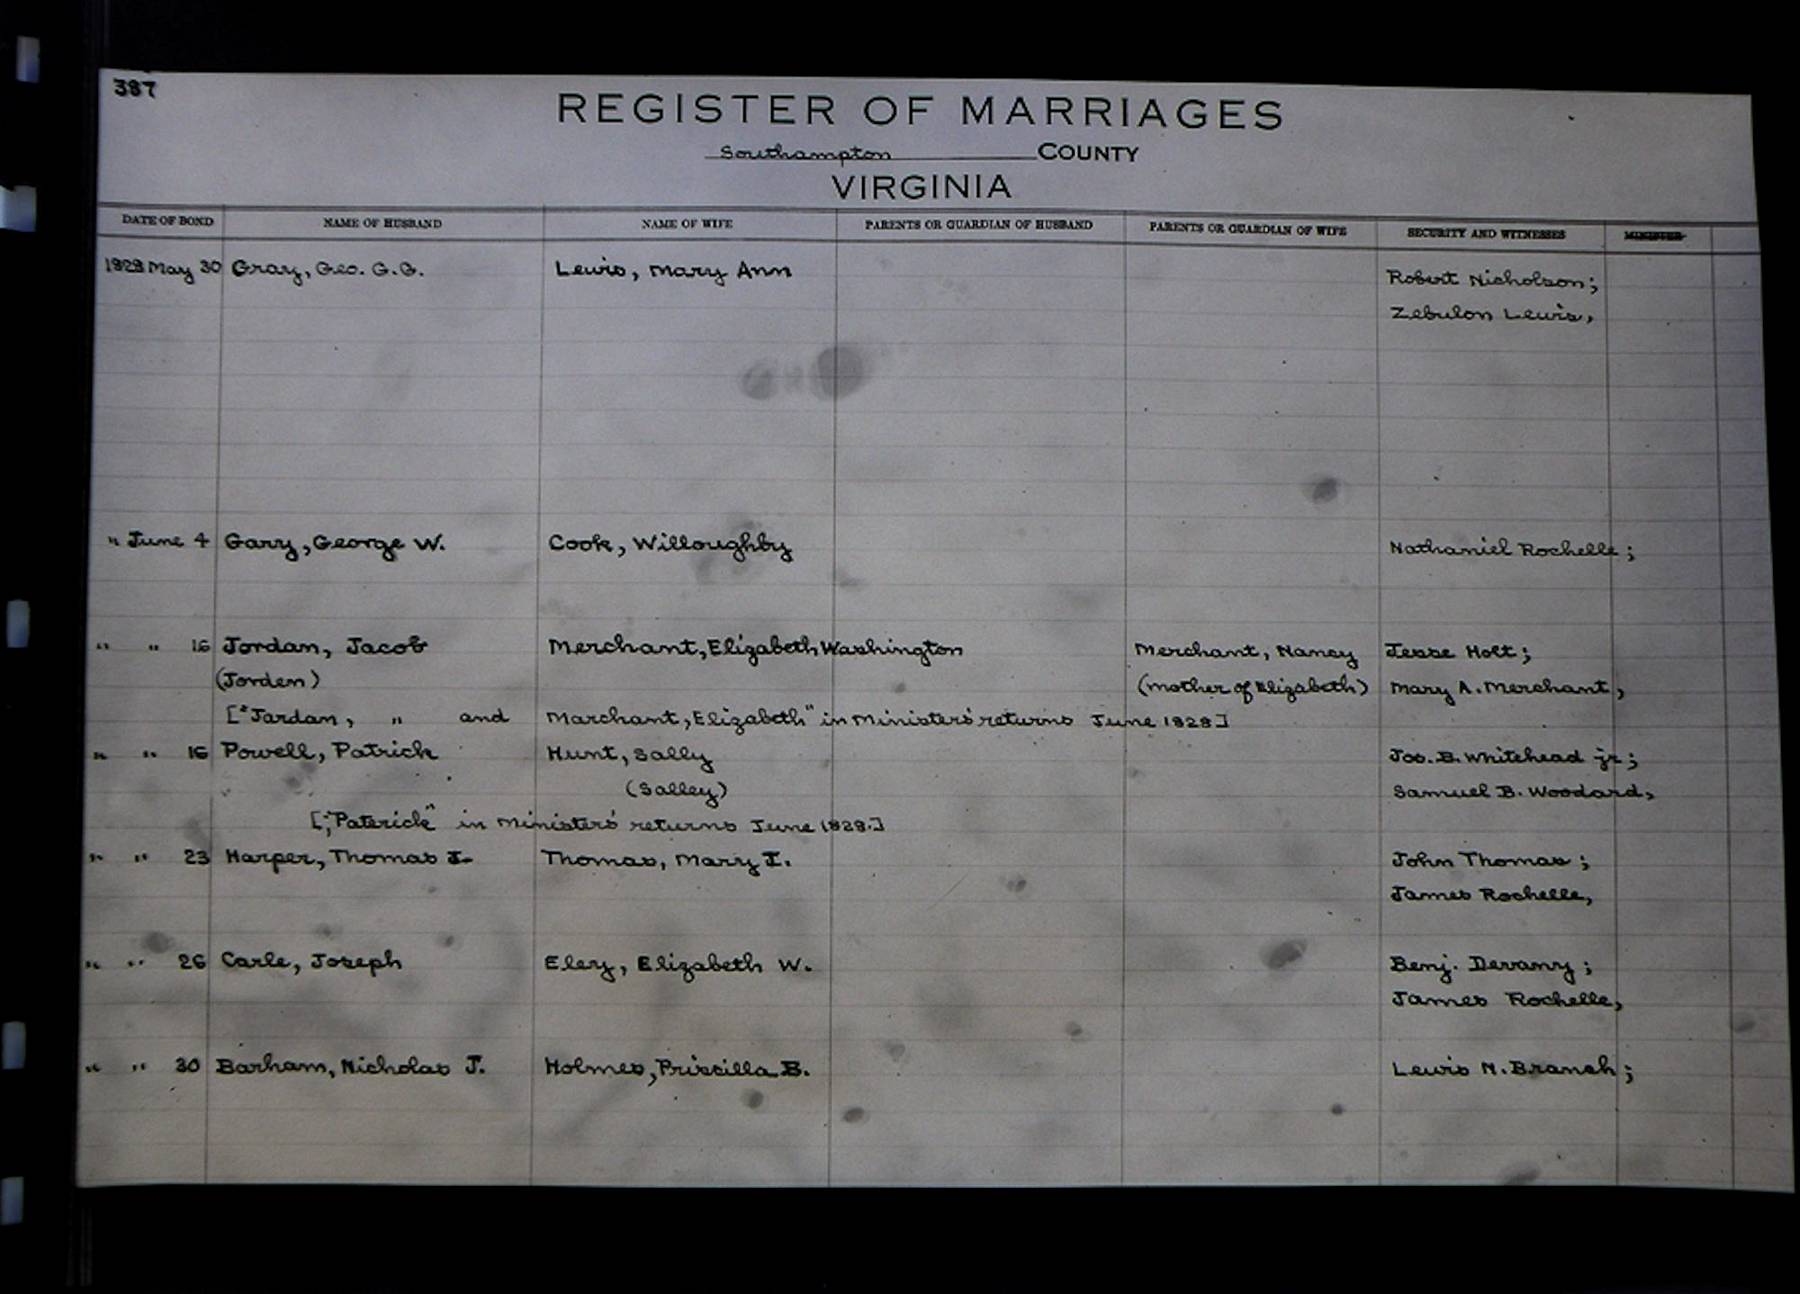 387
REGISTER OF MARRIAGES
Southampton COUNTY
VIRGINIA
DATE OF BOND NAME OF HUSBAND NAME OF WIFE PARENTS OR GUARDIAN OF HUSBAND PARENTS OR GUARDIAN OF WIFE SECURITY AND WITNESSES MINISTER
1828 May 30 Gray, Geo. G.G. Lewis, Mary Ann Robert Nicholson;
Zebulon Lewis,
" June 4 Gary, George W. Cook, Willoughby Nathaniel Rochelle;
" " 16 Jordan, Jacob Merchant, Elizabeth Washington Merchant, Nancy Jesse Holt;
(Jorden) (mother of Elizabeth) Mary A. Merchant,
["Jardan, " and Marchant, Elizabeth" in Ministers' returns June 1828]
" " 16 Powell, Patrick Hunt, Sally Jos. B. Whitehead jr;
(Salley) Samuel B. Woodard,
["Paterick" in Ministers' returns June 1828.]
" " 23 Harper, Thomas I. Thomas, Mary I. John Thomas;
James Rochelle,
" " 26 Carle, Joseph Eley, Elizabeth W. Benj. Devany;
James Rochelle,
" " 30 Barham, Nicholas J. Holmes, Priscilla B. Lewis N. Branch;